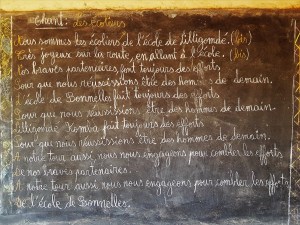 Chant : les écoliers
Nous sommes les écoliers de l'école de Filligomdé. (bis)
Très joyeux sur la route, en allant à l'école. (bis)
Les braves partenaires, font toujours des efforts
Pour que nous réussissions être des hommes de demain.
L'école de Bonnelles fait toujours des efforts
Pour que nous réussissions être des hommes de demain.
Komba fait toujours des efforts
Pour que nous réussissions être des hommes de demain.
A notre tour aussi, nous nous engageons pour combler les efforts
De nos braves partenaires.
A notre tour aussi, nous nous engageons pour combler les efforts
De l'école de Bonnelles.